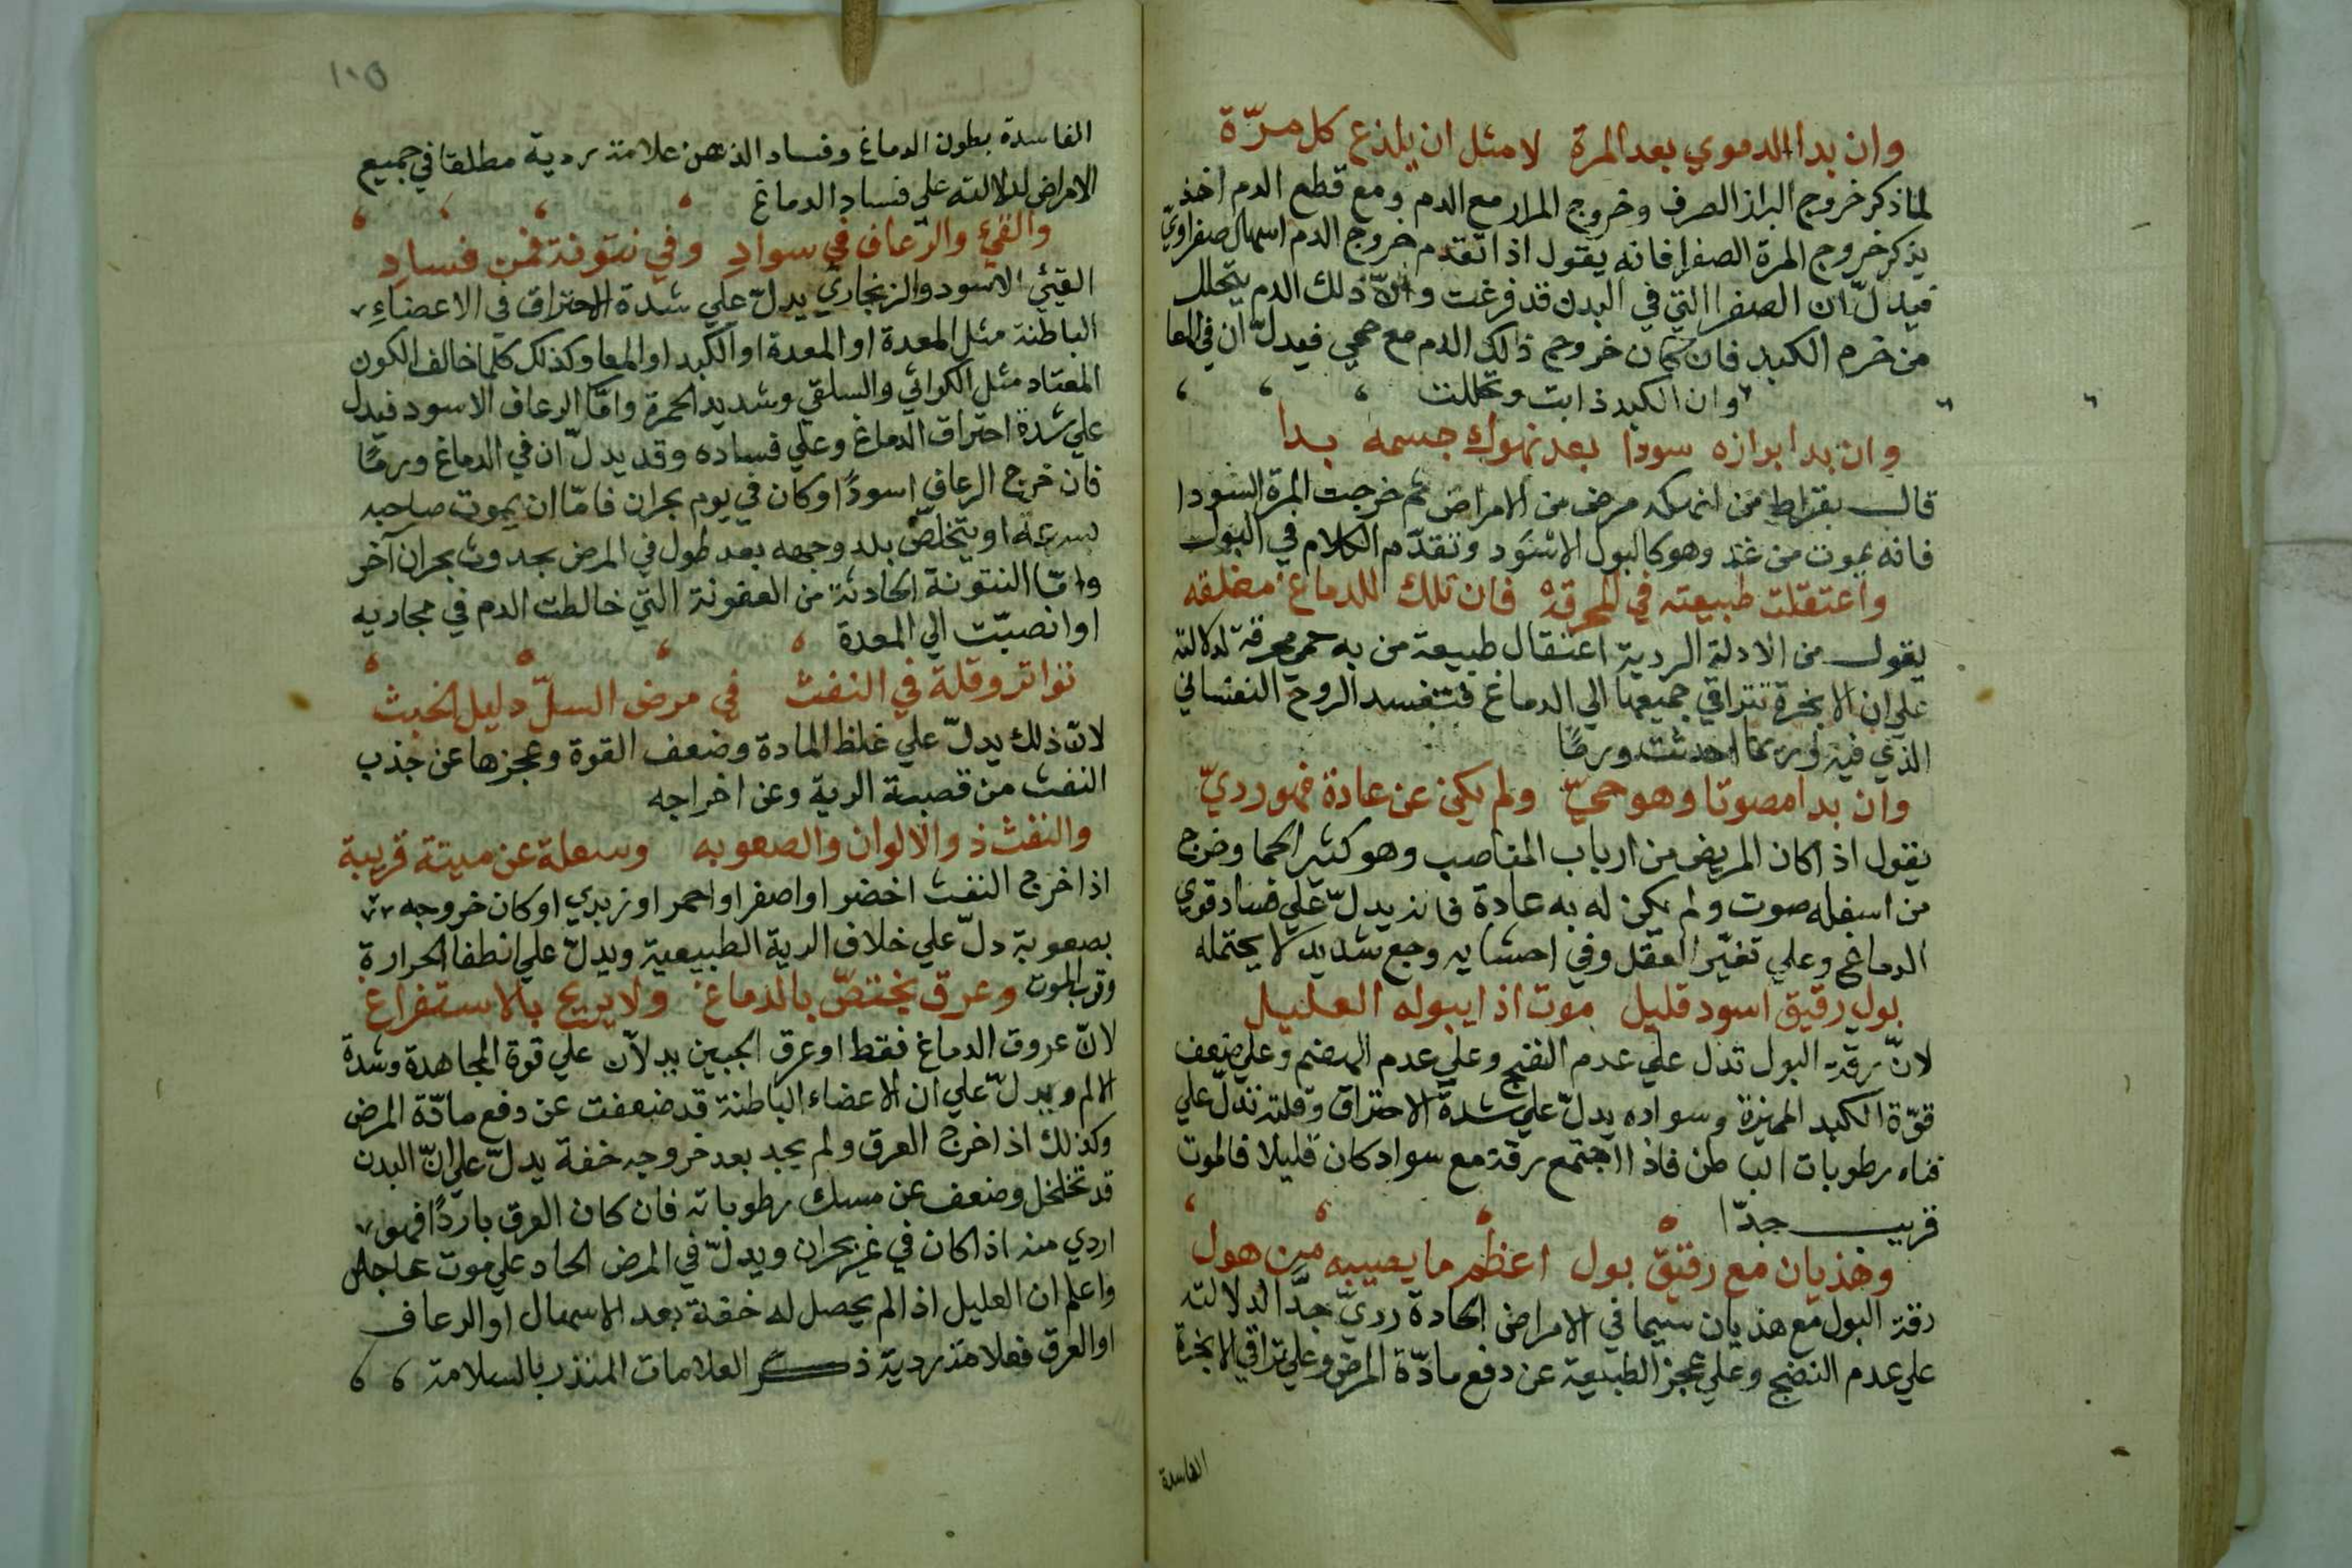 وان بدا الدموي بعد المرة لا مثل ان يلذع كل مرّة
لما ذكر خروج البراز الصرف وخروج المرار مع الدم ومع قطع الدم اخذ
يذكر خروج المرة الصفرا فانه يقول اذا تقدم خروج الدم اسهال صفراويّ
فيدلّ ان الصفرا التي في البدن قد فرغت وانّ ذلك الدم يتحلل
من خرم الكبد فان كان خروج ذلك الدم مع حمي فيدلّ ان في المعا
وان الكبد ذابت وتحللت
وان بدا برازه سودا بعد نهوك جسمه بدا
قال بقراط من انهكه مرض من الامراض ثم خرجت المرة السودا
فانه يموت من غد وهو كالبول الاسود وتقدّم الكلام في البول
واعتقلت طبيعته في المحرقة فان تلك للدماغ مغلقه
يقول من الادلة الردية اعتقال طبيعة من به حمي محرقة لدلالته
علي ان الابخرة تتراقي جميعها الي الدماغ فتفسد الروح النفساني
الذي فيه وربما احدثت ورمًا
وان بدا مصوتا وهو حييّ ولم يكن عن عادة فهو رديّ
يقول اذا كان المريض من ارباب المناصب وهو كثير الحيا وخرج
من اسفله صوت ولم يكن له به عادة فانه يدلّ علي فساد قوي
الدماغ وعلي تغيّر العقل وفي احشايه وجع شديد لا يحتمله
بول رقيق اسود قليل موت اذا يبوله العليل
لانّ رقة البول تدل علي عدم النضج وعلي عدم الهضم وعلي ضعف
قوّة الكبد المميزة وسواده يدلّ علي شدة الاحتراق وقلته تدلّ علي
فناء رطوبات الباطن فاذا اجتمع رقة مع سواد كان قليلا فالموت
قريب جدّا
وهذيان مع رقيق بول اعظم ما يصيبه من هول
رقة البول مع هذيان سيما في الامراض الحادة رديّ جدّا لدلالته
علي عدم النضج وعلي عجز الطبيعة عن دفع مادّة المرض وعلي تراقي الابخرة
الفاسدة
١٠٥
الفاسدة بطون الدماغ وفساد الذهن علامة ردية مطلقا في جميع
الامراض لدلالته علي فساد الدماغ
والقيء والرّعاف في سواد وفي نتونة فمن فساد
القيئ الاسود والزنجاري يدلّ علي شدة الاحتراق في الاعضاءِ
الباطنة مثل المعدة او المعدة او الكبد او المعا وكذلك كلما خالف الكون
المعتاد مثل الكراثي والسلقي وشديد الحمرة وامّا الرعاف الاسود فيدل
علي شدة احتراق الدماغ وعلي فساده وقد يدلّ ان في الدماغ ورمًا
فان خرج الرعاف اسودًا وكان في يوم بحران فامّا ان يموت صاحبه
بسرعة او يتخلص بلد وجهه بعد طول في المرض بحدوث بحران آخر
وامّا النتونة الحادثة من العفونة التي خالطت الدم في مجاريه
او انصبّت الي المعدة
تواتر وقلة في النفث في مرض السلّ دليل الخبث
لانّ ذلك يدلّ علي غلظ المادة وضعف القوة وعجزها عن جذب
النفث من قصبة الرية وعن اخراجه
والنفث ذو الالوان والصعوبه وسعلة عن ميتة قريبة
اذا خرج النفث اخضر او اصفر او احمر او زبدي او كان خروجه
بصعوبة دلّ علي خلاف الرية الطبيعية ويدلّ علي انطفا الحرارة
وقرب الموت وعرق يختصّ بالدماغ ولا يريح بالاستفراغ
لانّ عروق الدماغ فقط او عرق الجبين يدلاّن علي قوة المجاهدة وشدة
الالم ويدلّ علي ان الاعضاء الباطنة قد ضعفت عن دفع مادّة المرض
وكذلك اذا خرج العرق ولم يجد بعد خروجه خفة يدلّ علي انّ البدن
قد تخلخل وضعف عن مسك رطوباته فان كان العرق باردًا فهو
اردي منه اذا كان في غير بحران ويدلّ في المرض الحاد علي موت عاجل
واعلم ان العليل اذا لم يحصل له خفة بعد الاسهال او الرعاف
او العرق فعلامة ردية ذكر العلامات المنذر بالسلامة